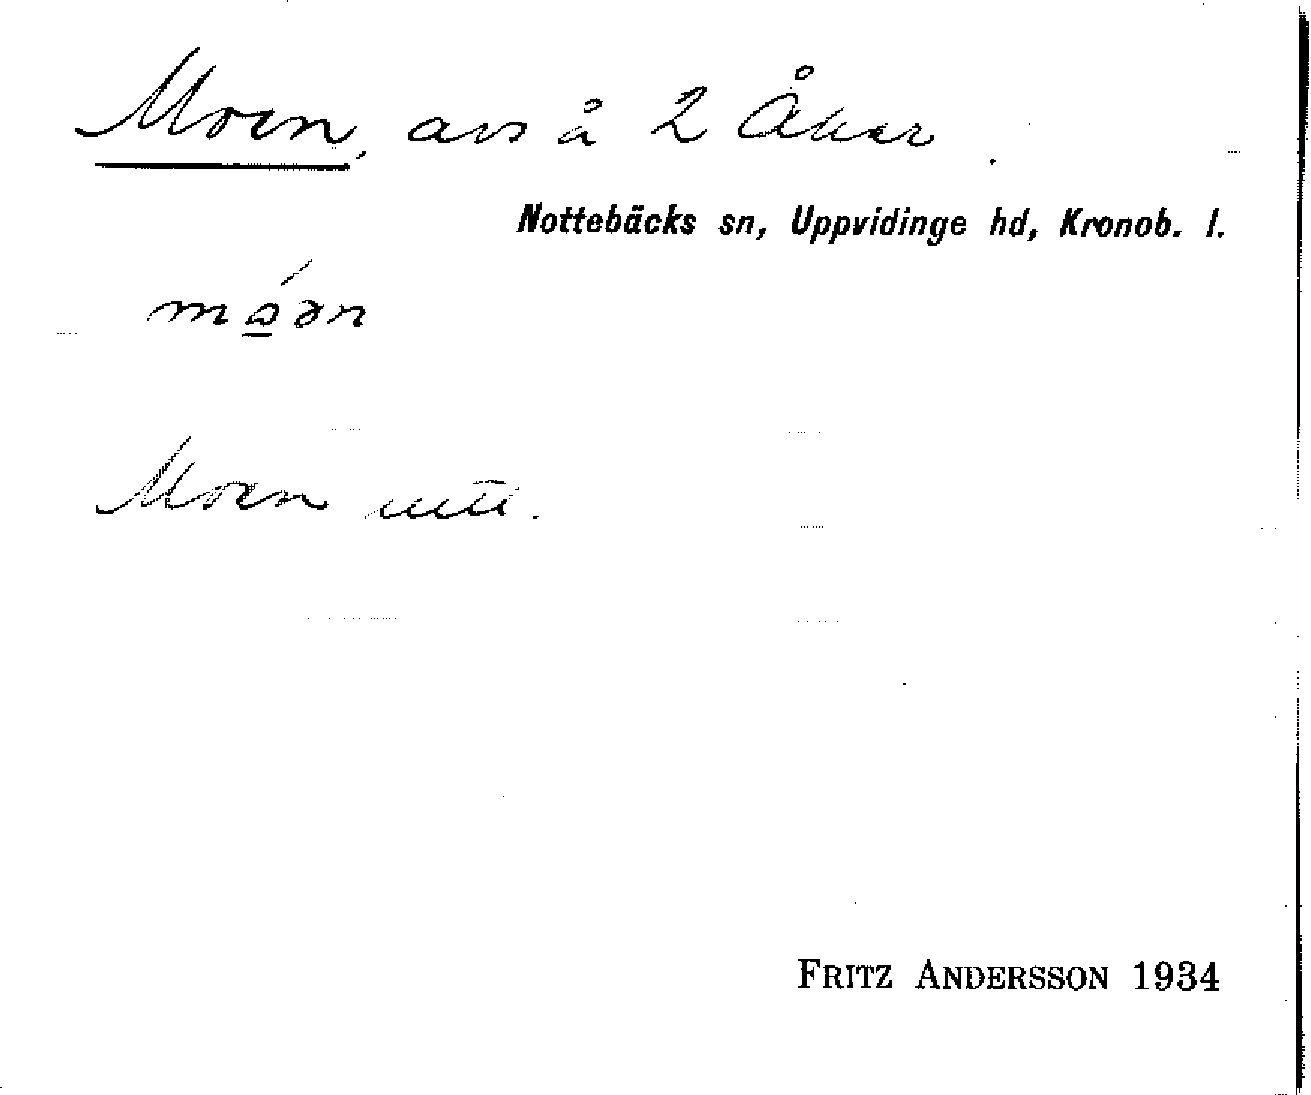 Moen, avs å 2 Åker
Nottebäcks sn, Uppvidinge hd, Kronob. l.
Moen utt.
FRITZ ANDERSSON 1934